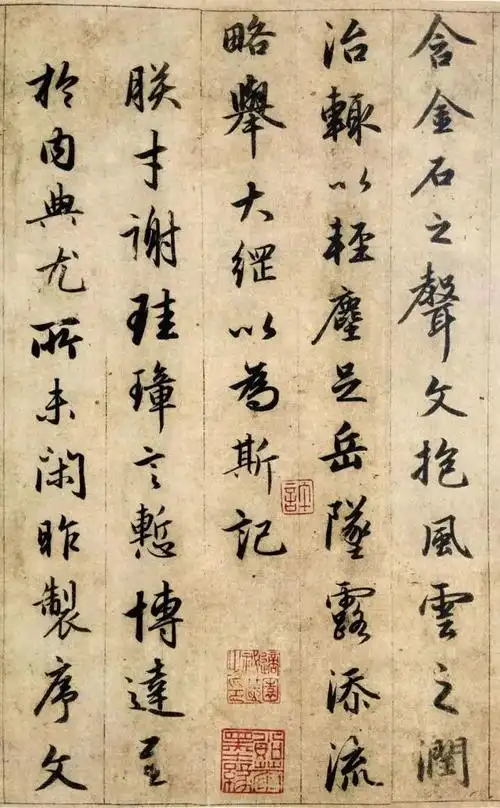 含金石之聲文抱風雲之潤
治輒以輕塵足岳墜露添流
略舉大綱以為斯記
朕才謝珪璋言慙博達至
於內典尤所未閑昨製序文